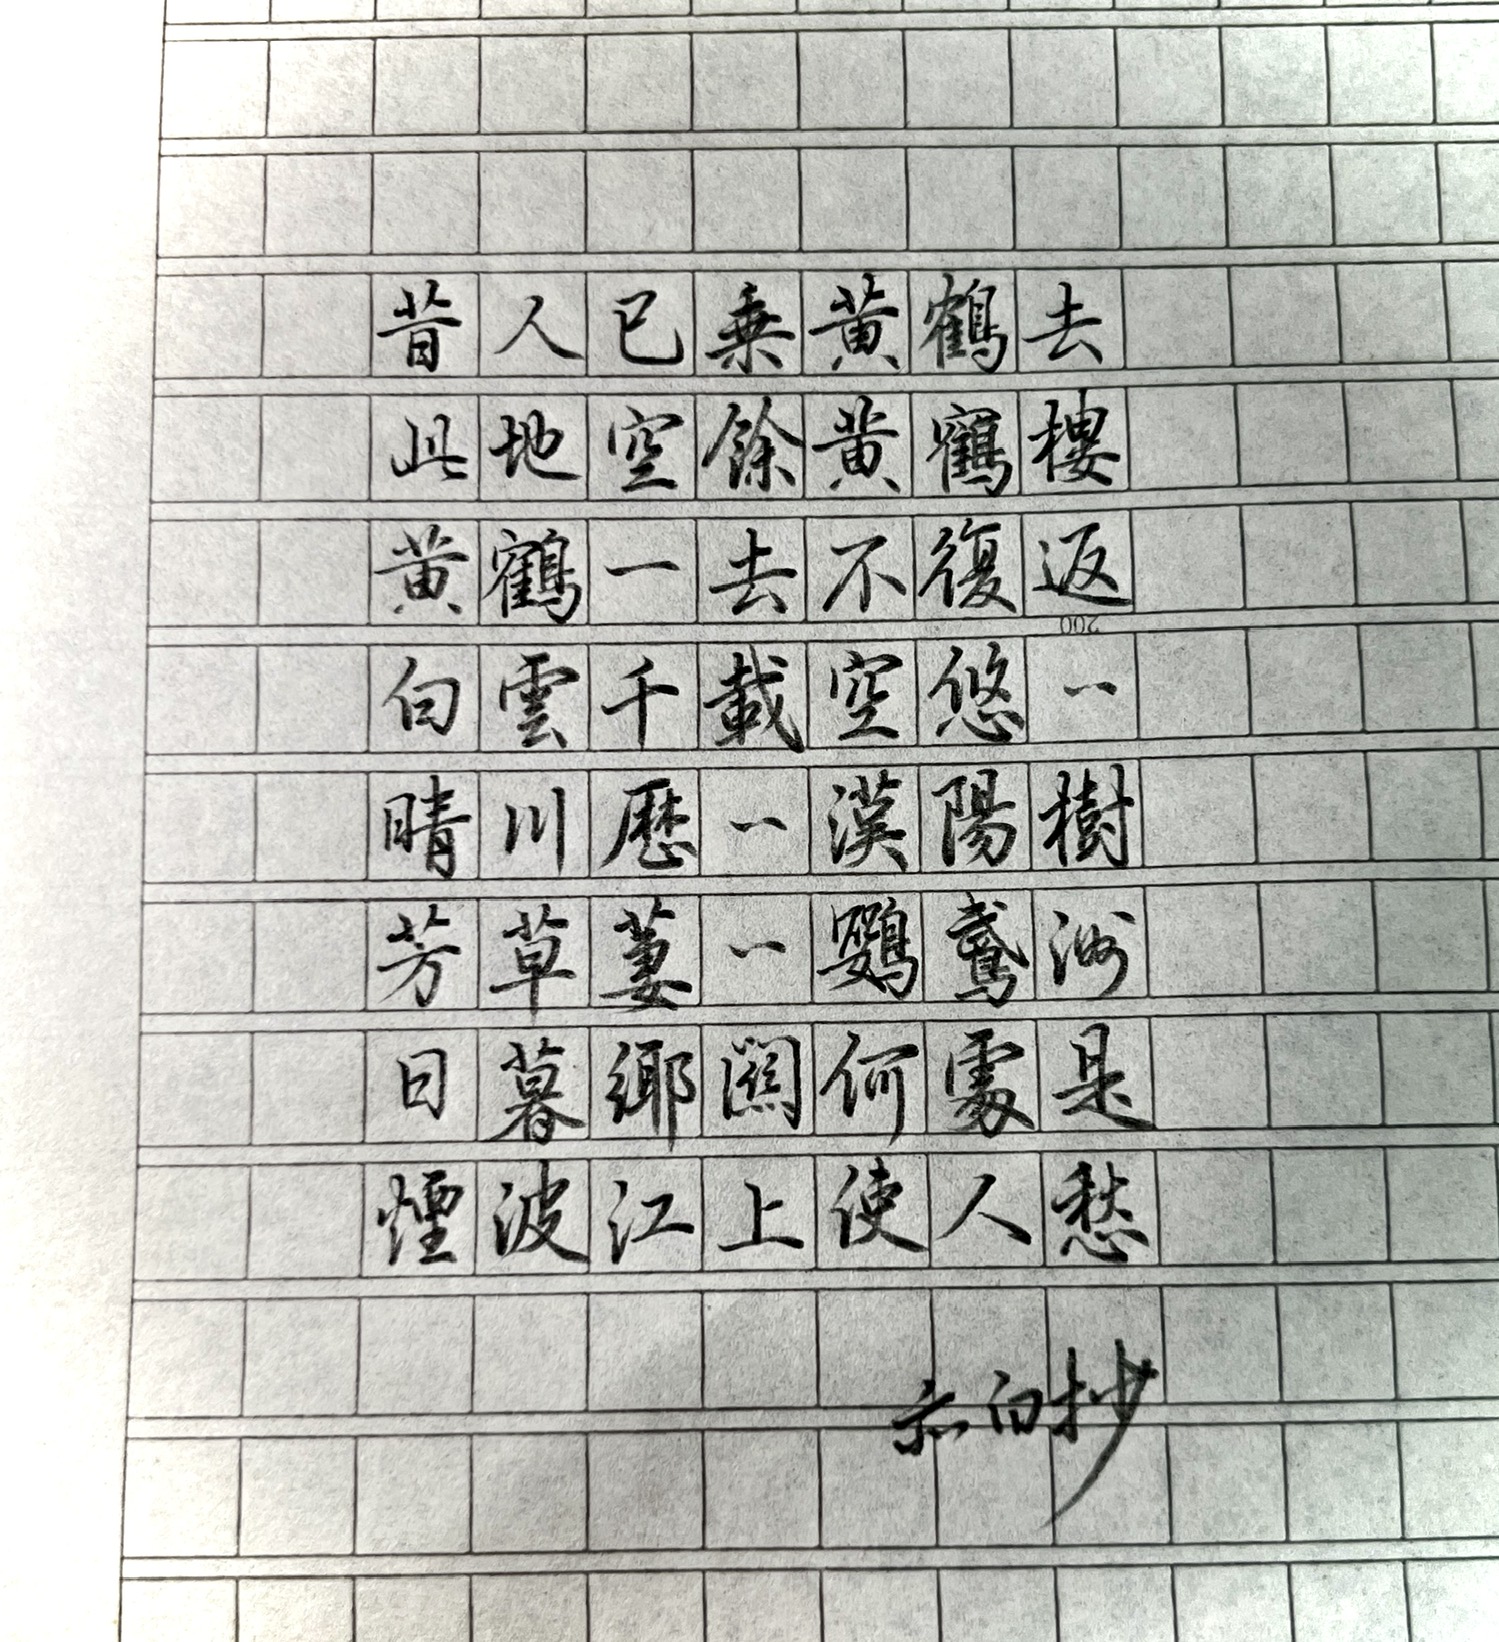 昔人已乘黄鶴去
此地空餘黄鶴樓
黄鶴一去不復返
200
白雲千載空悠々
晴川歷々漢陽樹
芳草萋々鸚鵡洲
日暮鄉關何處是
煙波江上使人愁
白抄